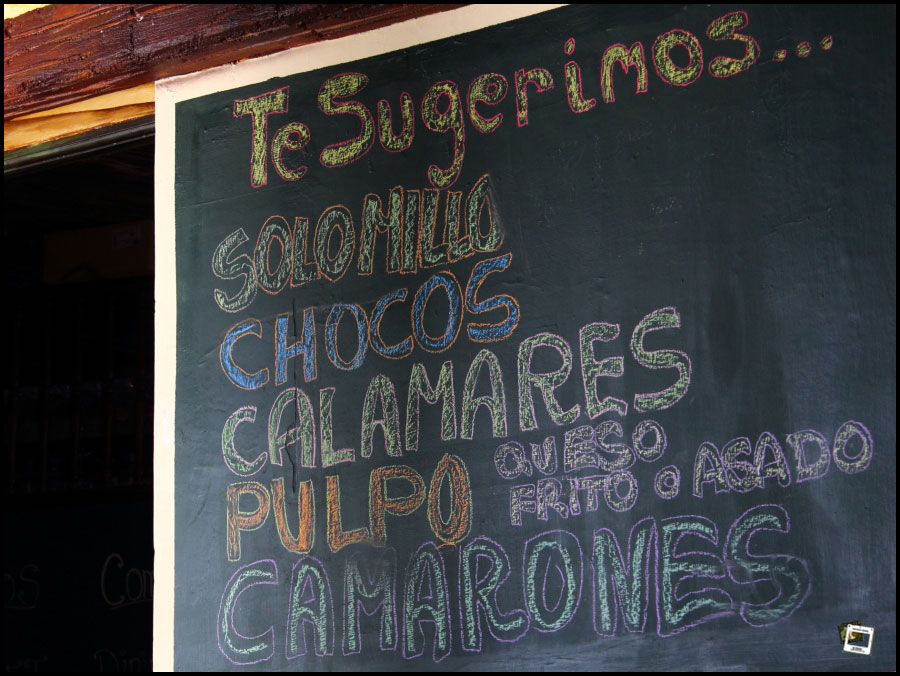 Te Sugerimos...
SOLOMILLO
CHOCOS
CALAMARES
PULPO
QUESO
FRITO o ASADO
CAMARONES